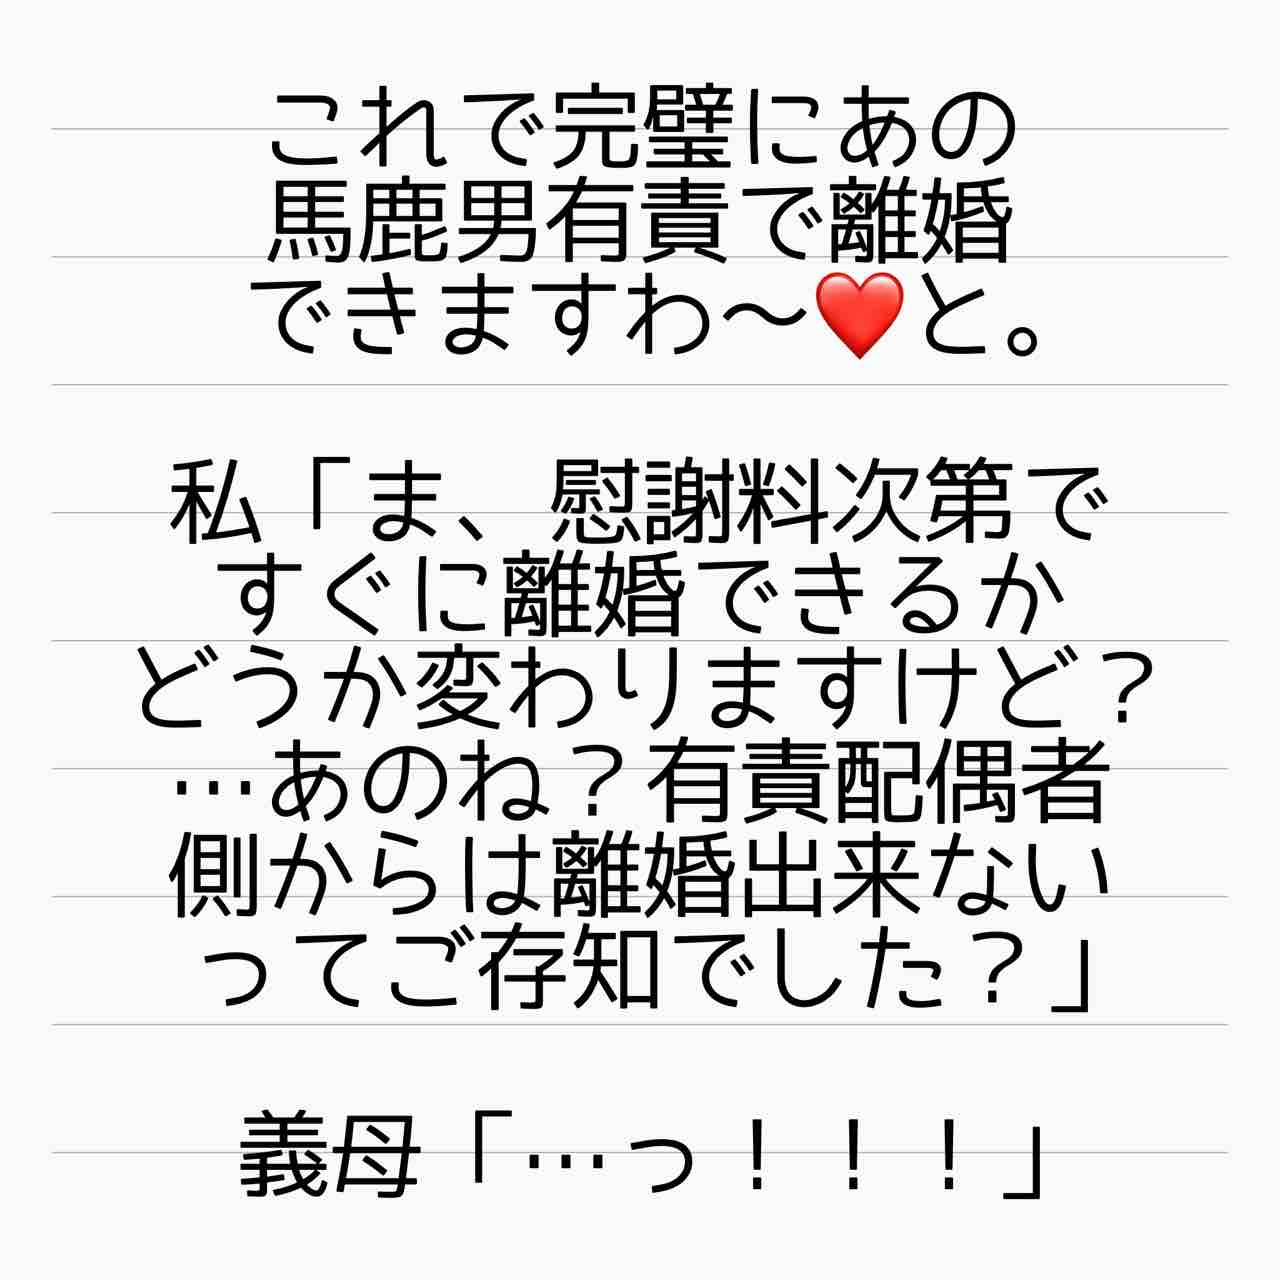 これで完璧にあの
馬鹿男有責で離婚
できますわ〜❤️と。
私「ま、慰謝料次第で
すぐに離婚できるか
どうか変わりますけど？
…あのね？有責配偶者
側からは離婚出来ない
ってご存知でした？」
義母「…っ！！！」